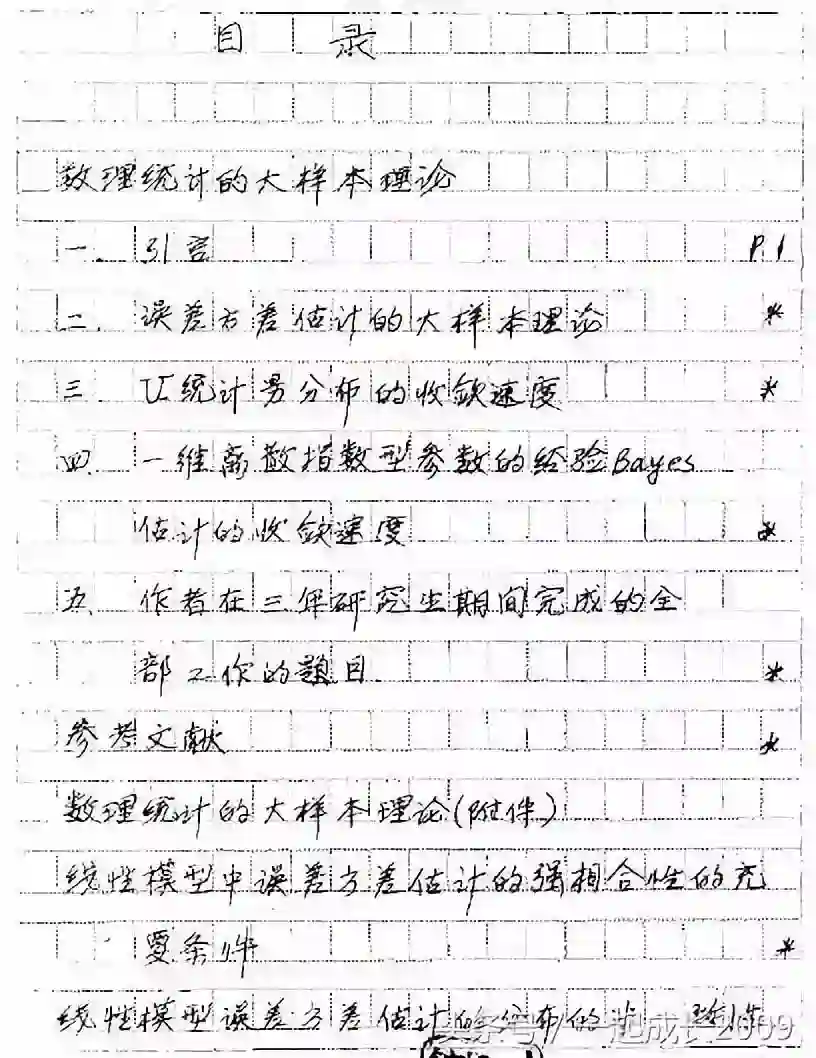 目 录
数理统计的大样本理论
一. 引言 P.1
二. 误差方差估计的大样本理论 *
三. U统计量分布的收敛速度 *
四. 一维离散指数型参数的经验Bayes
估计的收敛速度 *
五. 作者在三年研究生期间完成的全
部工作的题目 *
参考文献 *
数理统计的大样本理论(附件)
线性模型中误差方差估计的强相合性的充
要条件 *
线性模型误差方差估计的分布的非